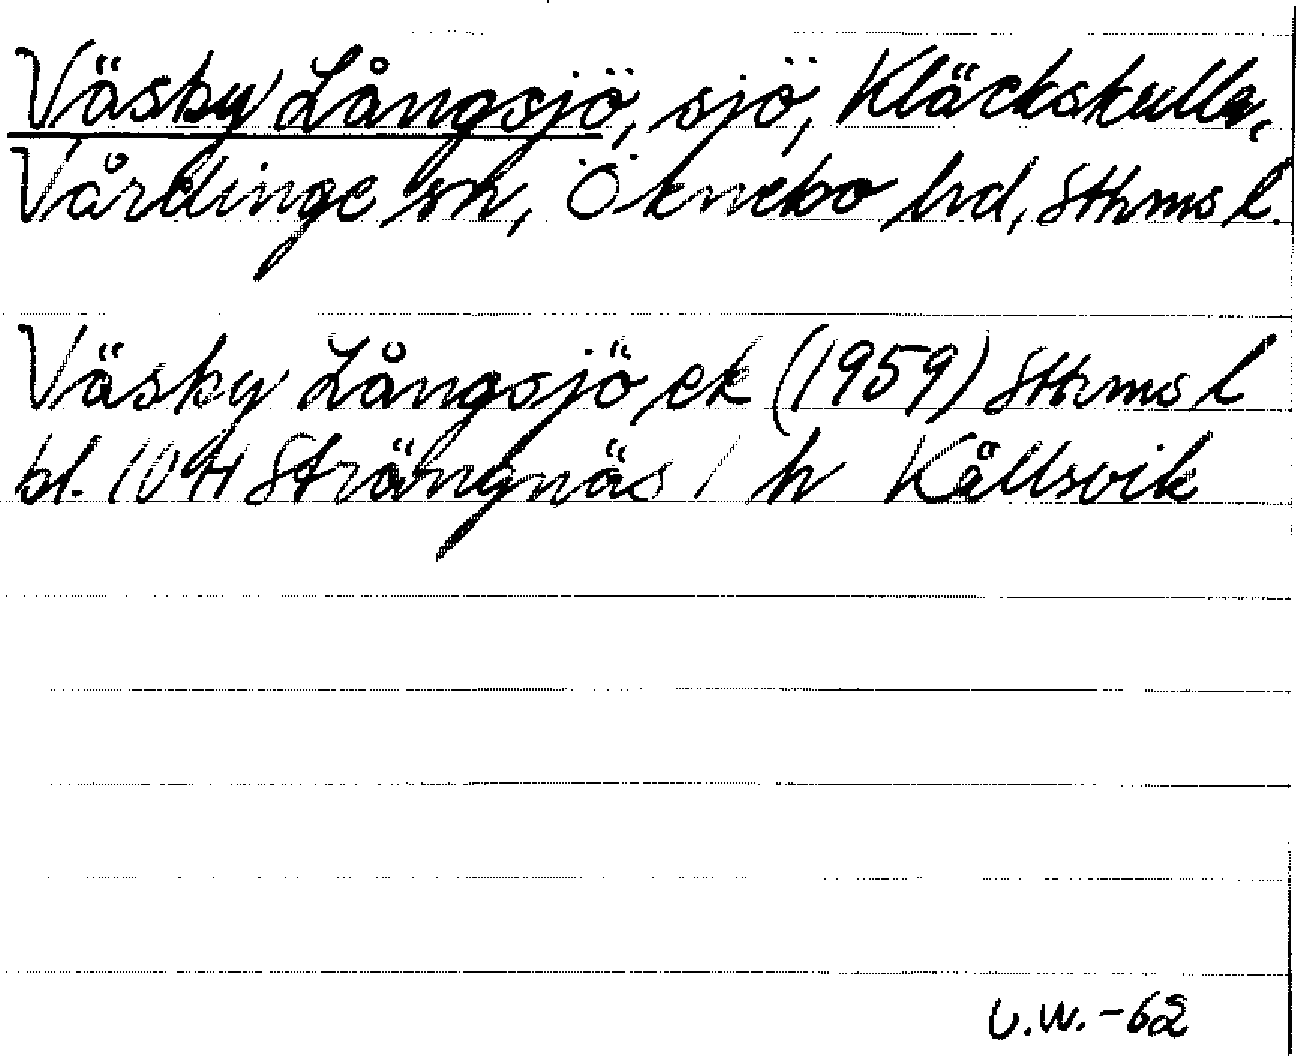 Väsby Långsjö, sjö, Kläckskulla,
Vårdinge sn, Öknebo hd, Sthms l.
Väsby Långsjö ek (1959) Sthms l
bl. 104 Strängnäs / h Källsvik
U.W. - 62